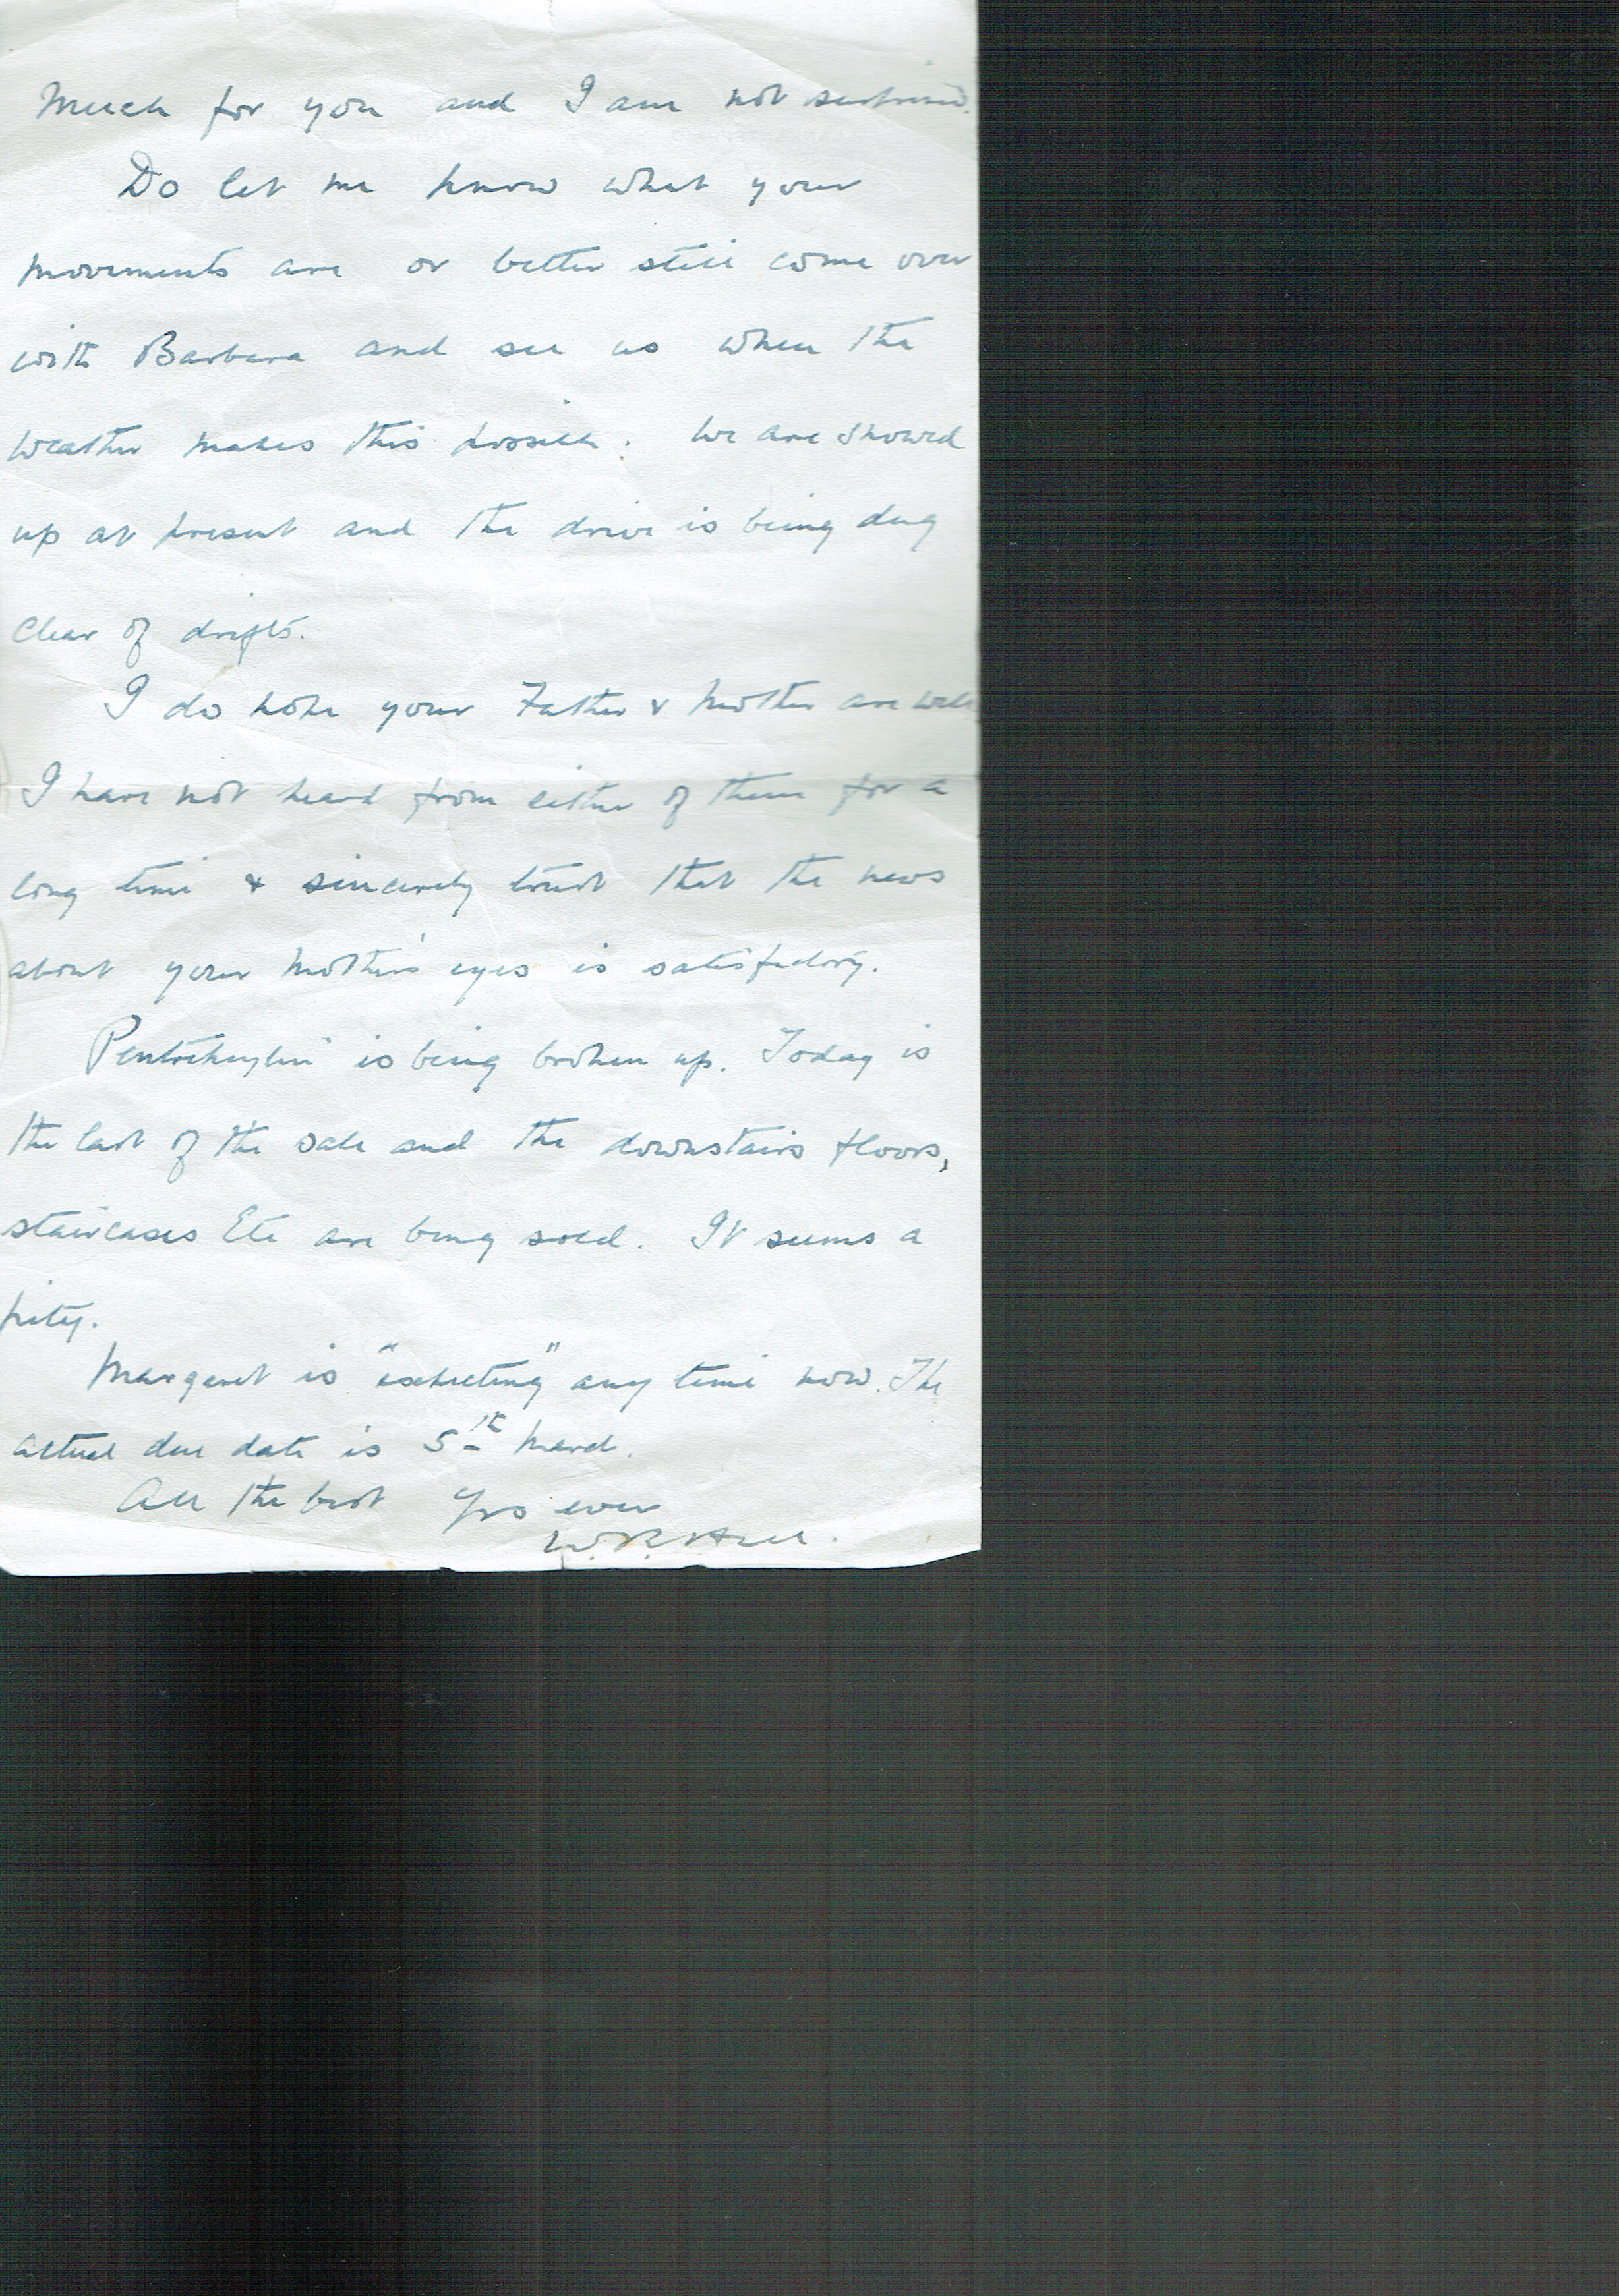 much for you and I am not surprised.
Do let me know what your
movements are or better still come over
with Barbara and see us when the
weather makes this possible. We are snowed
up at present and the drive is being dug
clear of drifts.
I do hope your Father & Mother are well
I have not heard from either of them for a
long time & sincerely trust that the news
about your mother's eyes is satisfactory.
is being broken up. Today is
the last of the sale and the downstairs floors,
staircases Etc are being sold. It seems a
pity.
Margaret is "expecting" any time now. The
actual due date is 5th March.
All the best Yrs ever